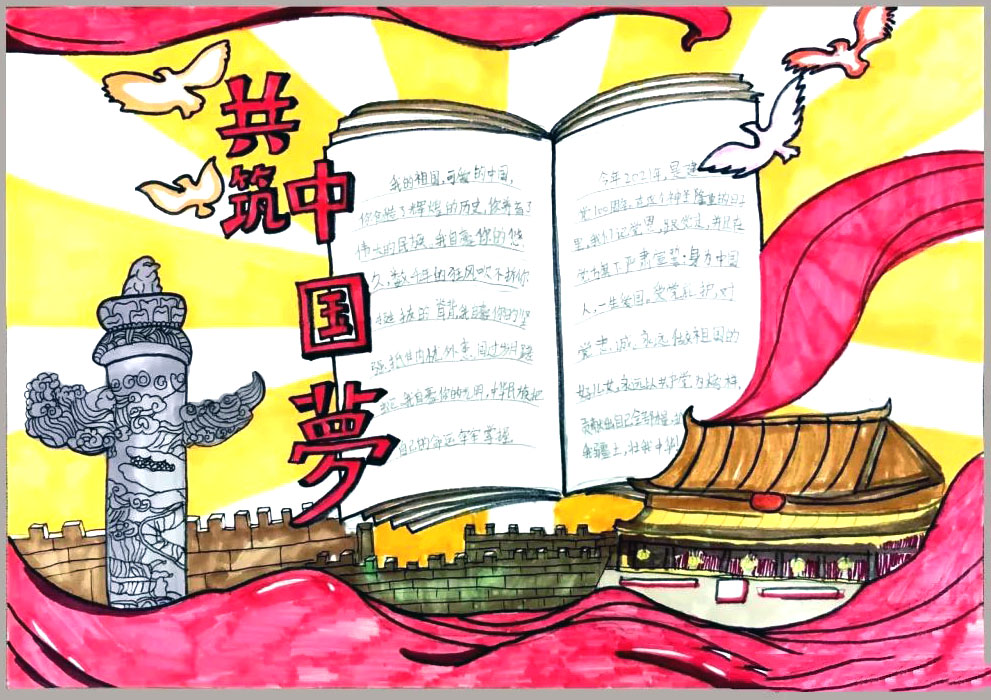 共筑
中国梦
我的祖国,可爱的中国,
你创造了辉煌的历史,你养育了
伟大的民族。我自豪你的悠
久,数千年的狂风吹不折你
挺拔的脊背,我自豪你的坚
强,抵住内忧外患,闯过岁月蹉
我自豪你的光明,中华民族把
自己的命运牢牢掌握
今年2021年,是建
党100周年,在这个神圣隆重的日子
里,我们记党恩,跟党走,并且在
党旗下严肃宣誓:身为中国
人,一生爱国。受党礼护,对
党忠诚。永远做祖国的
好儿女,永远以共产党为榜样,
贡献出自己全部
我疆土,壮我中华!